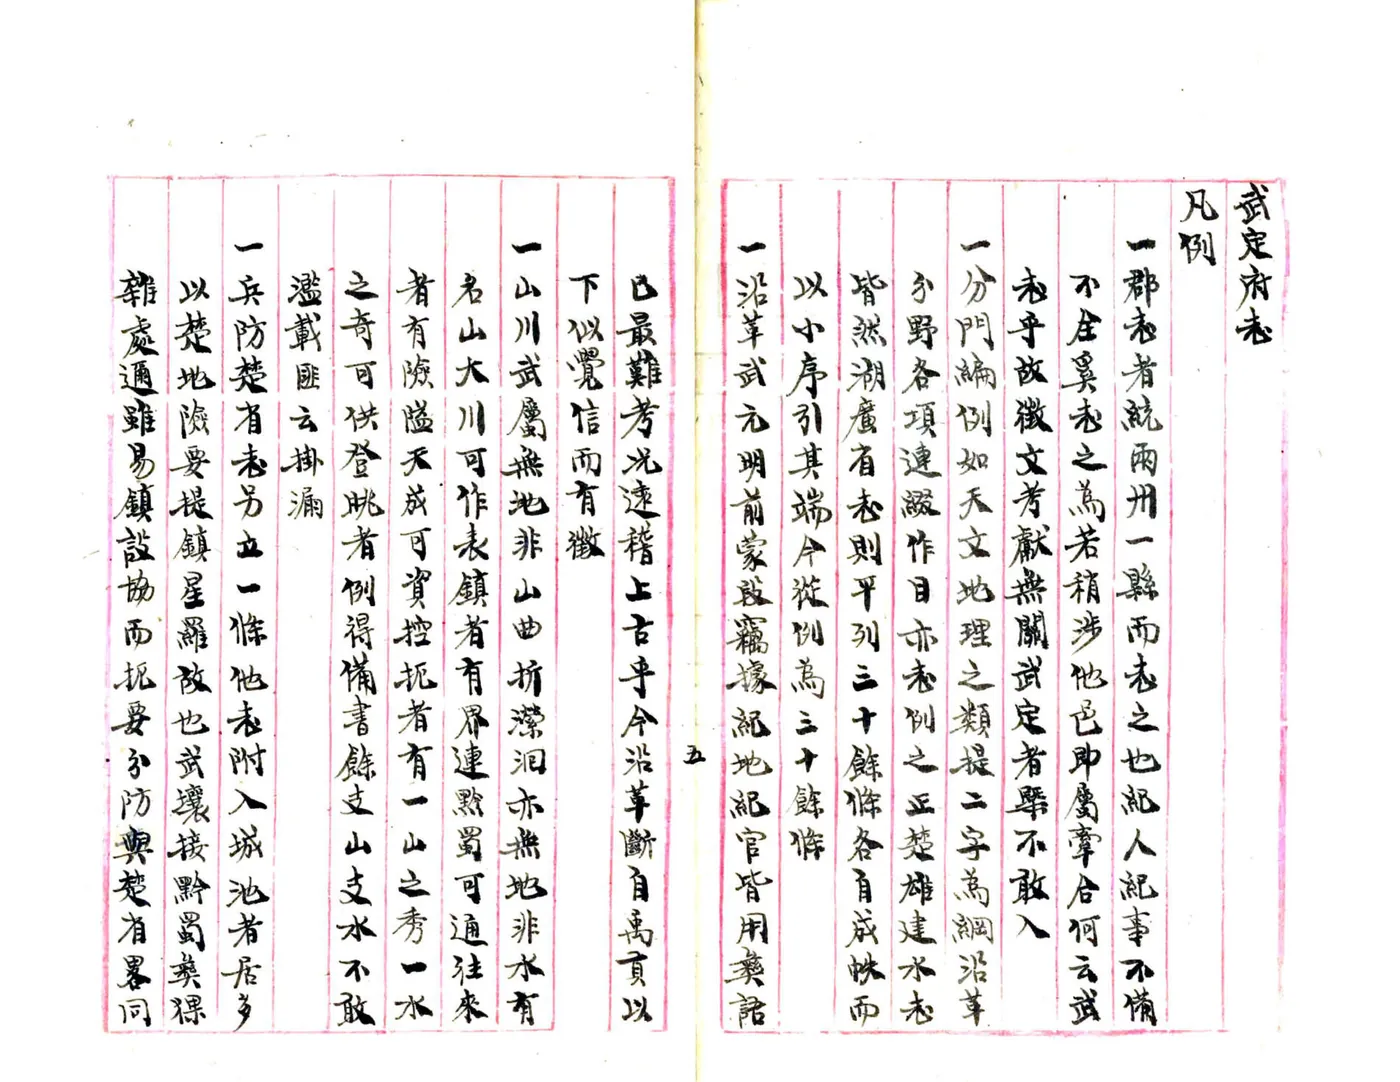 武定府志
凡例
一郡志者統兩州一縣而志之也紀人紀事不備
不全奚志之為若稍涉他邑即屬牽合何云武
志乎故徵文考獻無關武定者槩不敢入
一分門編例如天文地理之類提二字為綱沿革
分野各項連綴作目亦志例之正楚雄建水志
皆然湖廣省志則平列三十餘條各自成帙而
以小序引其端今從例為三十餘條
一沿革武元明前蒙段竊據紀地紀官皆用彝語
五
已最難考况遠稽上古乎今沿革斷自禹貢以
下似覺信而有徵
一山川武屬無地非山曲折瀠洄亦無地非水有
名山大川可作表鎮者有界連黔蜀可通往來
者有險隘天成可資控扼者有一山之秀一水
之奇可供登眺者例得備書餘支山支水不敢
濫載匪云掛漏
一兵防楚省志另立一條他志附入城池者居多
以楚地險要提鎮星羅故也武壤接黔蜀彝猓
雜處邇雖易鎮設協而扼要分防與楚省畧同